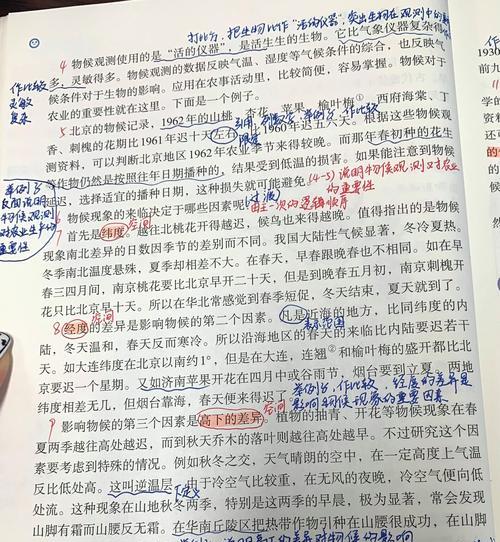 打比方，把生物比作"活的仪器"，突出生物在观测中的
4 物候观测使用的是"活的仪器"，是活生生的生物。它比气象仪器复杂得
多，灵敏得多。物候观测的数据反映气温、湿度等气候条件的综合，也反映气
候条件对于生物的影响。应用在农事活动里，比较简便，容易掌握。物候对于
农业的重要性就在这里。下面是一个例子。
作比较
灵敏
复杂
5 北京的物候记录，1962年的山桃、杏花、苹果、榆叶梅①、西府海棠、丁
香、刺槐的花期比1961年迟十天左右，比1960年迟五六天。根据这些物候观
测资料，可以判断北京地区1962年农业季节来得较晚。而那年春初种的花生
等作物仍然是按照往年日期播种的，结果受到低温的损害。如果能注意到物候
延迟，选择适宜的播种日期，这种损失就可能避免。
(4-5)说明物候观测对农业
的重要性
物候现象的来临决定于哪些因素呢？
(过渡)
6
7 首先是纬度。越往北桃花开得越迟，候鸟也来得越晚。值得指出的是物候
空间
现象南北差异的日数因季节的差别而不同。我国大陆性气候显著，冬冷夏热。
冬季南北温度悬殊，夏季却相差不大。在春天，早春跟晚春也不相同。如在早
春三四月间，南京桃花要比北京早开二十天，但是到晚春五月初，南京刺槐开
花只比北京早十天。所以在华北常感觉到春季短促，冬天结束，夏天就到了。
8 经度的差异是影响物候的第二个因素。凡是近海的地方，比同纬度的内
空间
陆，冬天温和，春天反而寒冷。所以沿海地区的春天的来临比内陆要迟若干
天。如大连纬度在北京以南约1°，但是在大连，连翘②和榆叶梅的盛开都比北
京要迟一个星期。又如济南苹果开花在四月中或谷雨节，烟台要到立夏。两地
纬度相差无几，但烟台靠海，春天便来得迟了。
举例子、作比较，经度的差异是
影响物候现象的重要因素
9 影响物候的第三个因素是高下的差异。植物的抽青、开花等物候现象在春
空间
夏两季越往高处越迟，而到秋天乔木的落叶则越往高处越早。不过研究这个因
素要考虑到特殊的情况。例如秋冬之交，天气晴朗的空中，在一定高度上气温
反比低处高。这叫逆温层。由于冷空气比较重，在无风的夜晚，冷空气便向低
处流。这种现象在山地秋冬两季，特别是这两季的早晨，极为显著，常会发现
山脚有霜而山腰反无霜。在华南丘陵区把热带作物引种在山腰很成功，在山脚